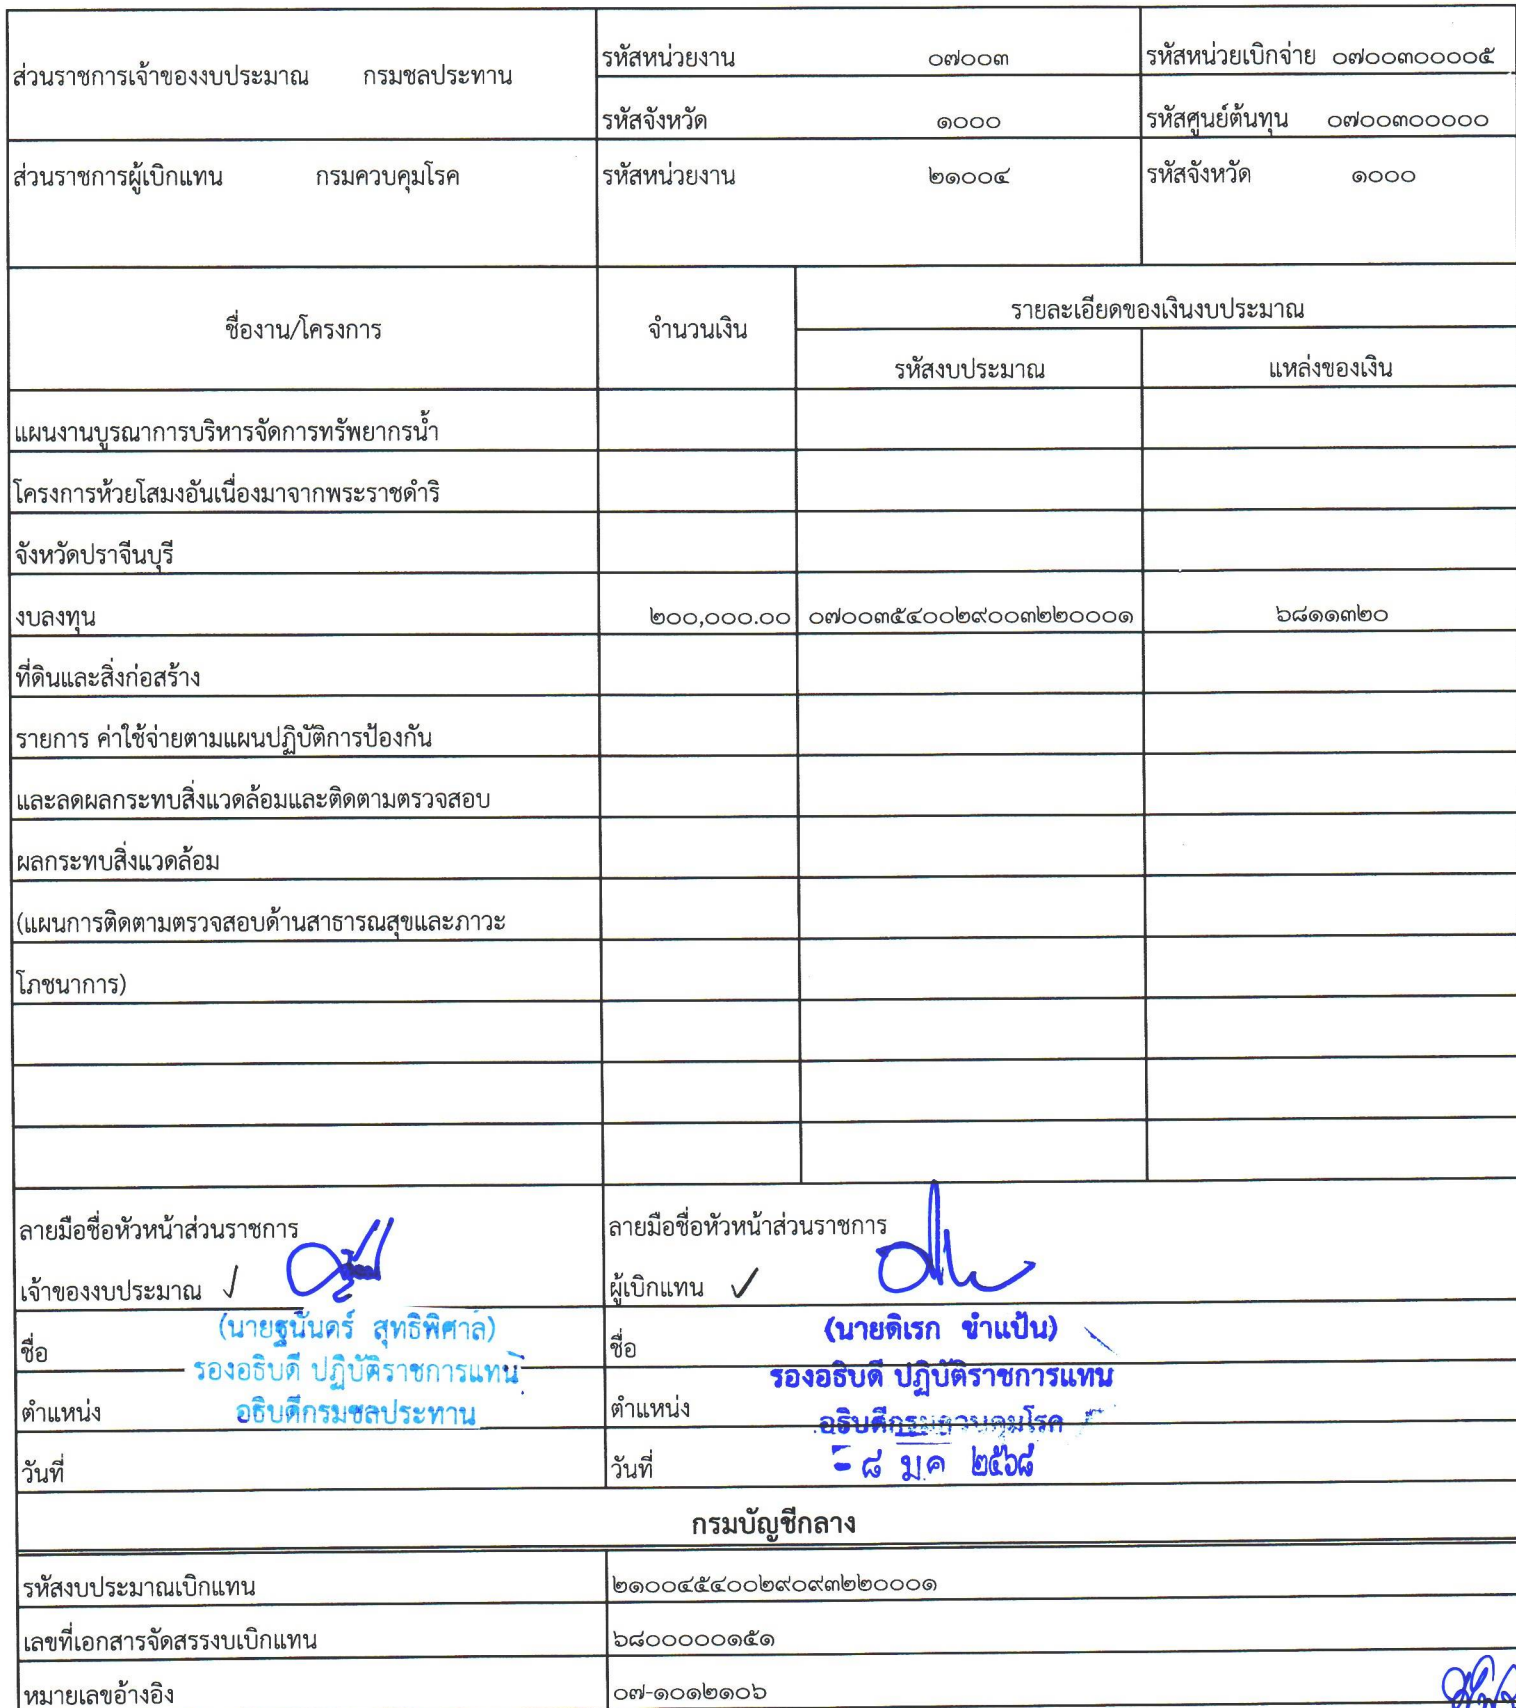 ส่วนราชการเจ้าของงบประมาณ กรมชลประทาน รหัสหน่วยงาน ๐๗๐๐๓ รหัสหน่วยเบิกจ่าย ๐๗๐๐๓๐๐๐๐๕
รหัสจังหวัด ๑๐๐๐ รหัสศูนย์ต้นทุน ๐๗๐๐๓๐๐๐๐๐
ส่วนราชการผู้เบิกแทน กรมควบคุมโรค รหัสหน่วยงาน ๒๑๐๐๔ รหัสจังหวัด ๑๐๐๐
ชื่องาน/โครงการ จำนวนเงิน รายละเอียดของเงินงบประมาณ
รหัสงบประมาณ แหล่งของเงิน
แผนงานบูรณาการบริหารจัดการทรัพยากรน้ำ
โครงการห้วยโสมงอันเนื่องมาจากพระราชดำริ
จังหวัดปราจีนบุรี
งบลงทุน ๒๐๐,๐๐๐.๐๐ ๐๗๐๐๓๕๔๐๐๒๙๐๐๓๒๒๐๐๐๑ ๖๘๑๑๓๒๐
ที่ดินและสิ่งก่อสร้าง
รายการ ค่าใช้จ่ายตามแผนปฏิบัติการป้องกัน
และลดผลกระทบสิ่งแวดล้อมและติดตามตรวจสอบ
ผลกระทบสิ่งแวดล้อม
(แผนการติดตามตรวจสอบด้านสาธารณสุขและภาวะ
โภชนาการ)
ลายมือชื่อหัวหน้าส่วนราชการ ลายมือชื่อหัวหน้าส่วนราชการ
เจ้าของงบประมาณ ✓ ผู้เบิกแทน ✓
ชื่อ (นายฐนันดร์ สุทธิพิศาล) ชื่อ (นายดิเรก ขำแป้น)
รองอธิบดี ปฏิบัติราชการแทน รองอธิบดี ปฏิบัติราชการแทน
ตำแหน่ง อธิบดีกรมชลประทาน ตำแหน่ง อธิบดีกรมควบคุมโรค
วันที่ วันที่ - ๘ ม.ค ๒๕๖๘
กรมบัญชีกลาง
รหัสงบประมาณเบิกแทน ๒๑๐๐๔๕๔๐๐๒๙๐๙๓๒๒๐๐๐๑
เลขที่เอกสารจัดสรรงบเบิกแทน ๖๘๐๐๐๐๐๑๕๑
หมายเลขอ้างอิง ๐๗-๑๐๑๒๑๐๖